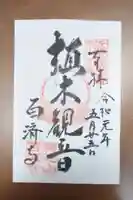 奉拝
令和元年
五月五日
植木観音
百済寺